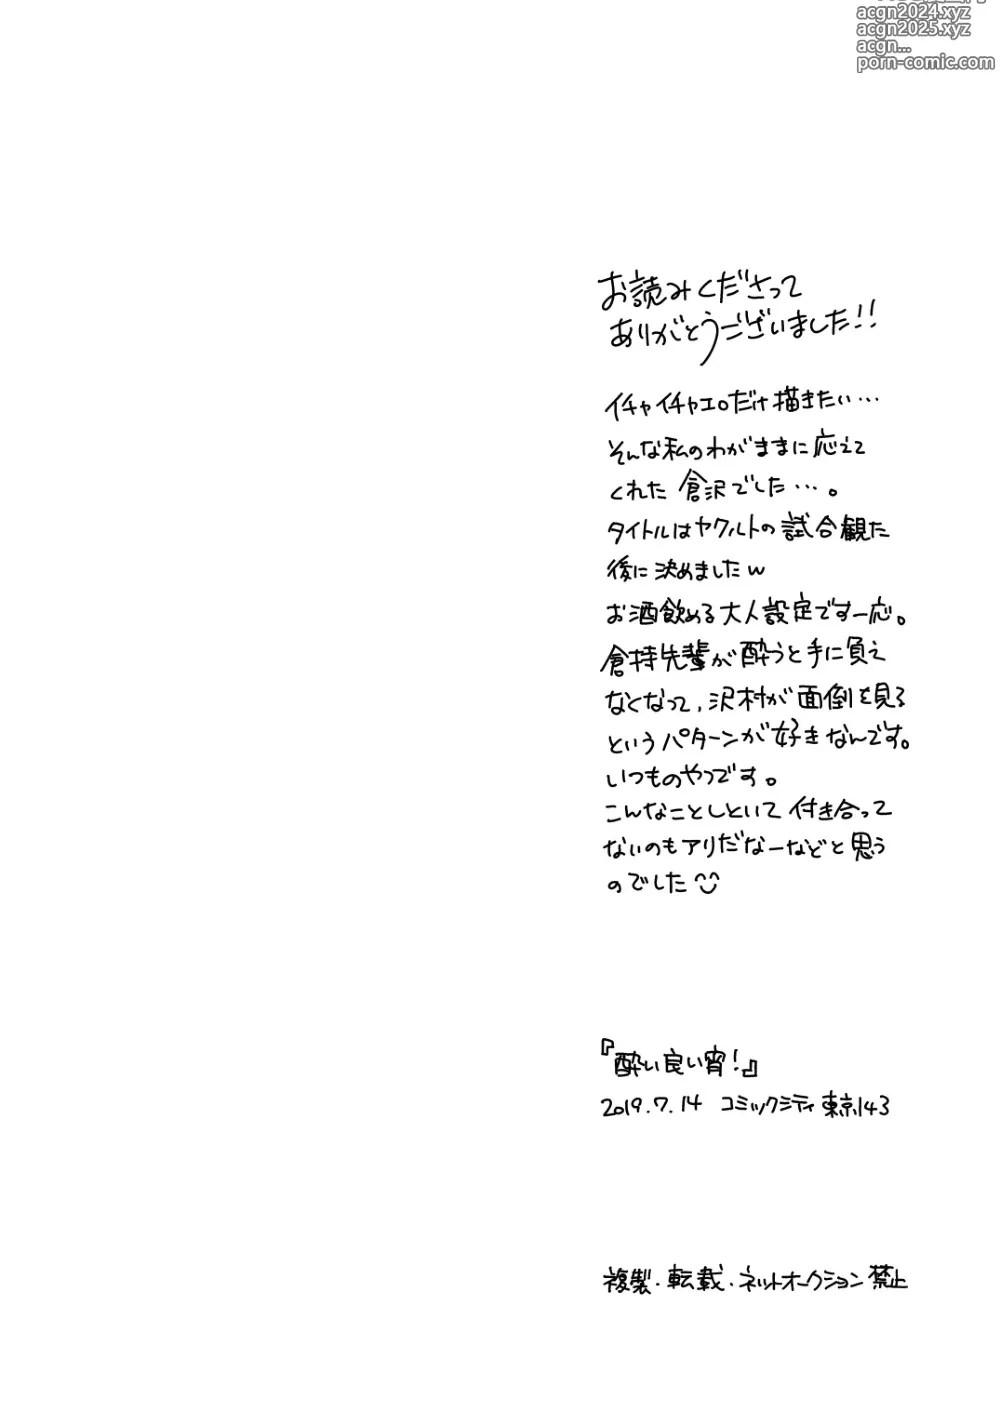 acgn2024.xyz
acgn2025.xyz
acgn...
porn-comic.com
お読みくださって
ありがとうございました!!
イチャイチャエロだけ描きたい…
そんな私のわがままに応えて
くれた倉沢でした…。
タイトルはヤクルトの試合観た
後に決めましたw
お酒飲める大人設定です一応。
倉持先輩が酔うと手に負え
なくなって、沢村が面倒を見る
というパターンが好きなんです。
いつものやつです。
こんなことしといて付き合って
ないのもアリだなーなどと思う
のでした
『酔い良い宵!』
2019.7.14 コミックシティ東京143
複製・転載・ネットオークション禁止